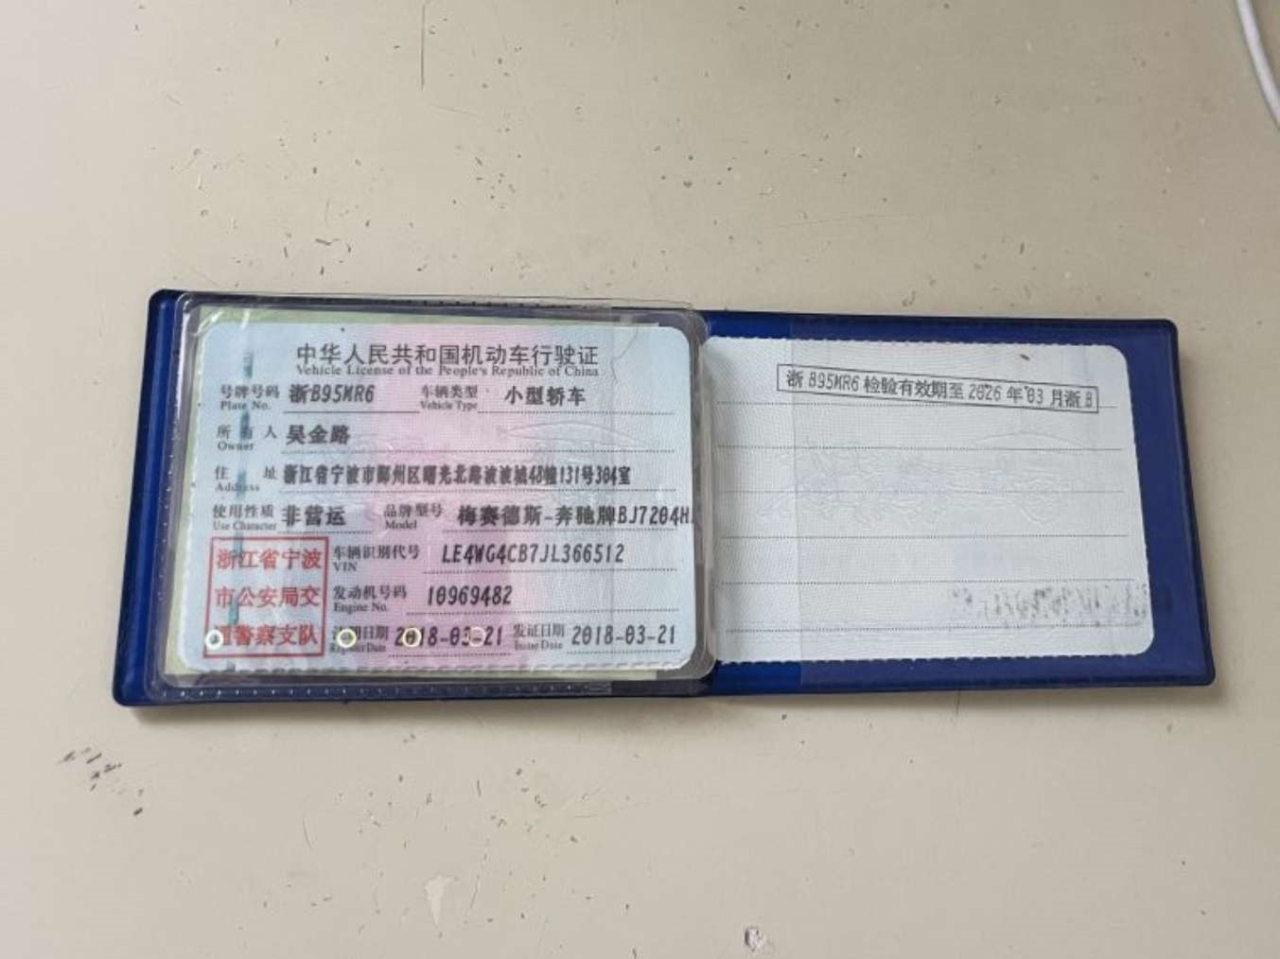 中华人民共和国机动车行驶证
Vehicle License of the People's Republic of China
号牌号码 浙B95MR6 车辆类型 小型轿车
Plate No. Vehicle Type
所有人 吴金路
Owner
住址 浙江省宁波市鄞州区曙光北路波波城48幢131号304室
Address
使用性质 非营运 品牌型号 梅赛德斯-奔驰牌BJ7204H
Use Character Model
浙江省宁波
市公安局交
通警察支队
车辆识别代号 LE4WG4CB7JL366512
VIN
发动机号码 10969482
Engine No.
注册日期 2018-03-21 发证日期 2018-03-21
Register Date Issue Date
浙B95MR6检验有效期至2026年03月浙B